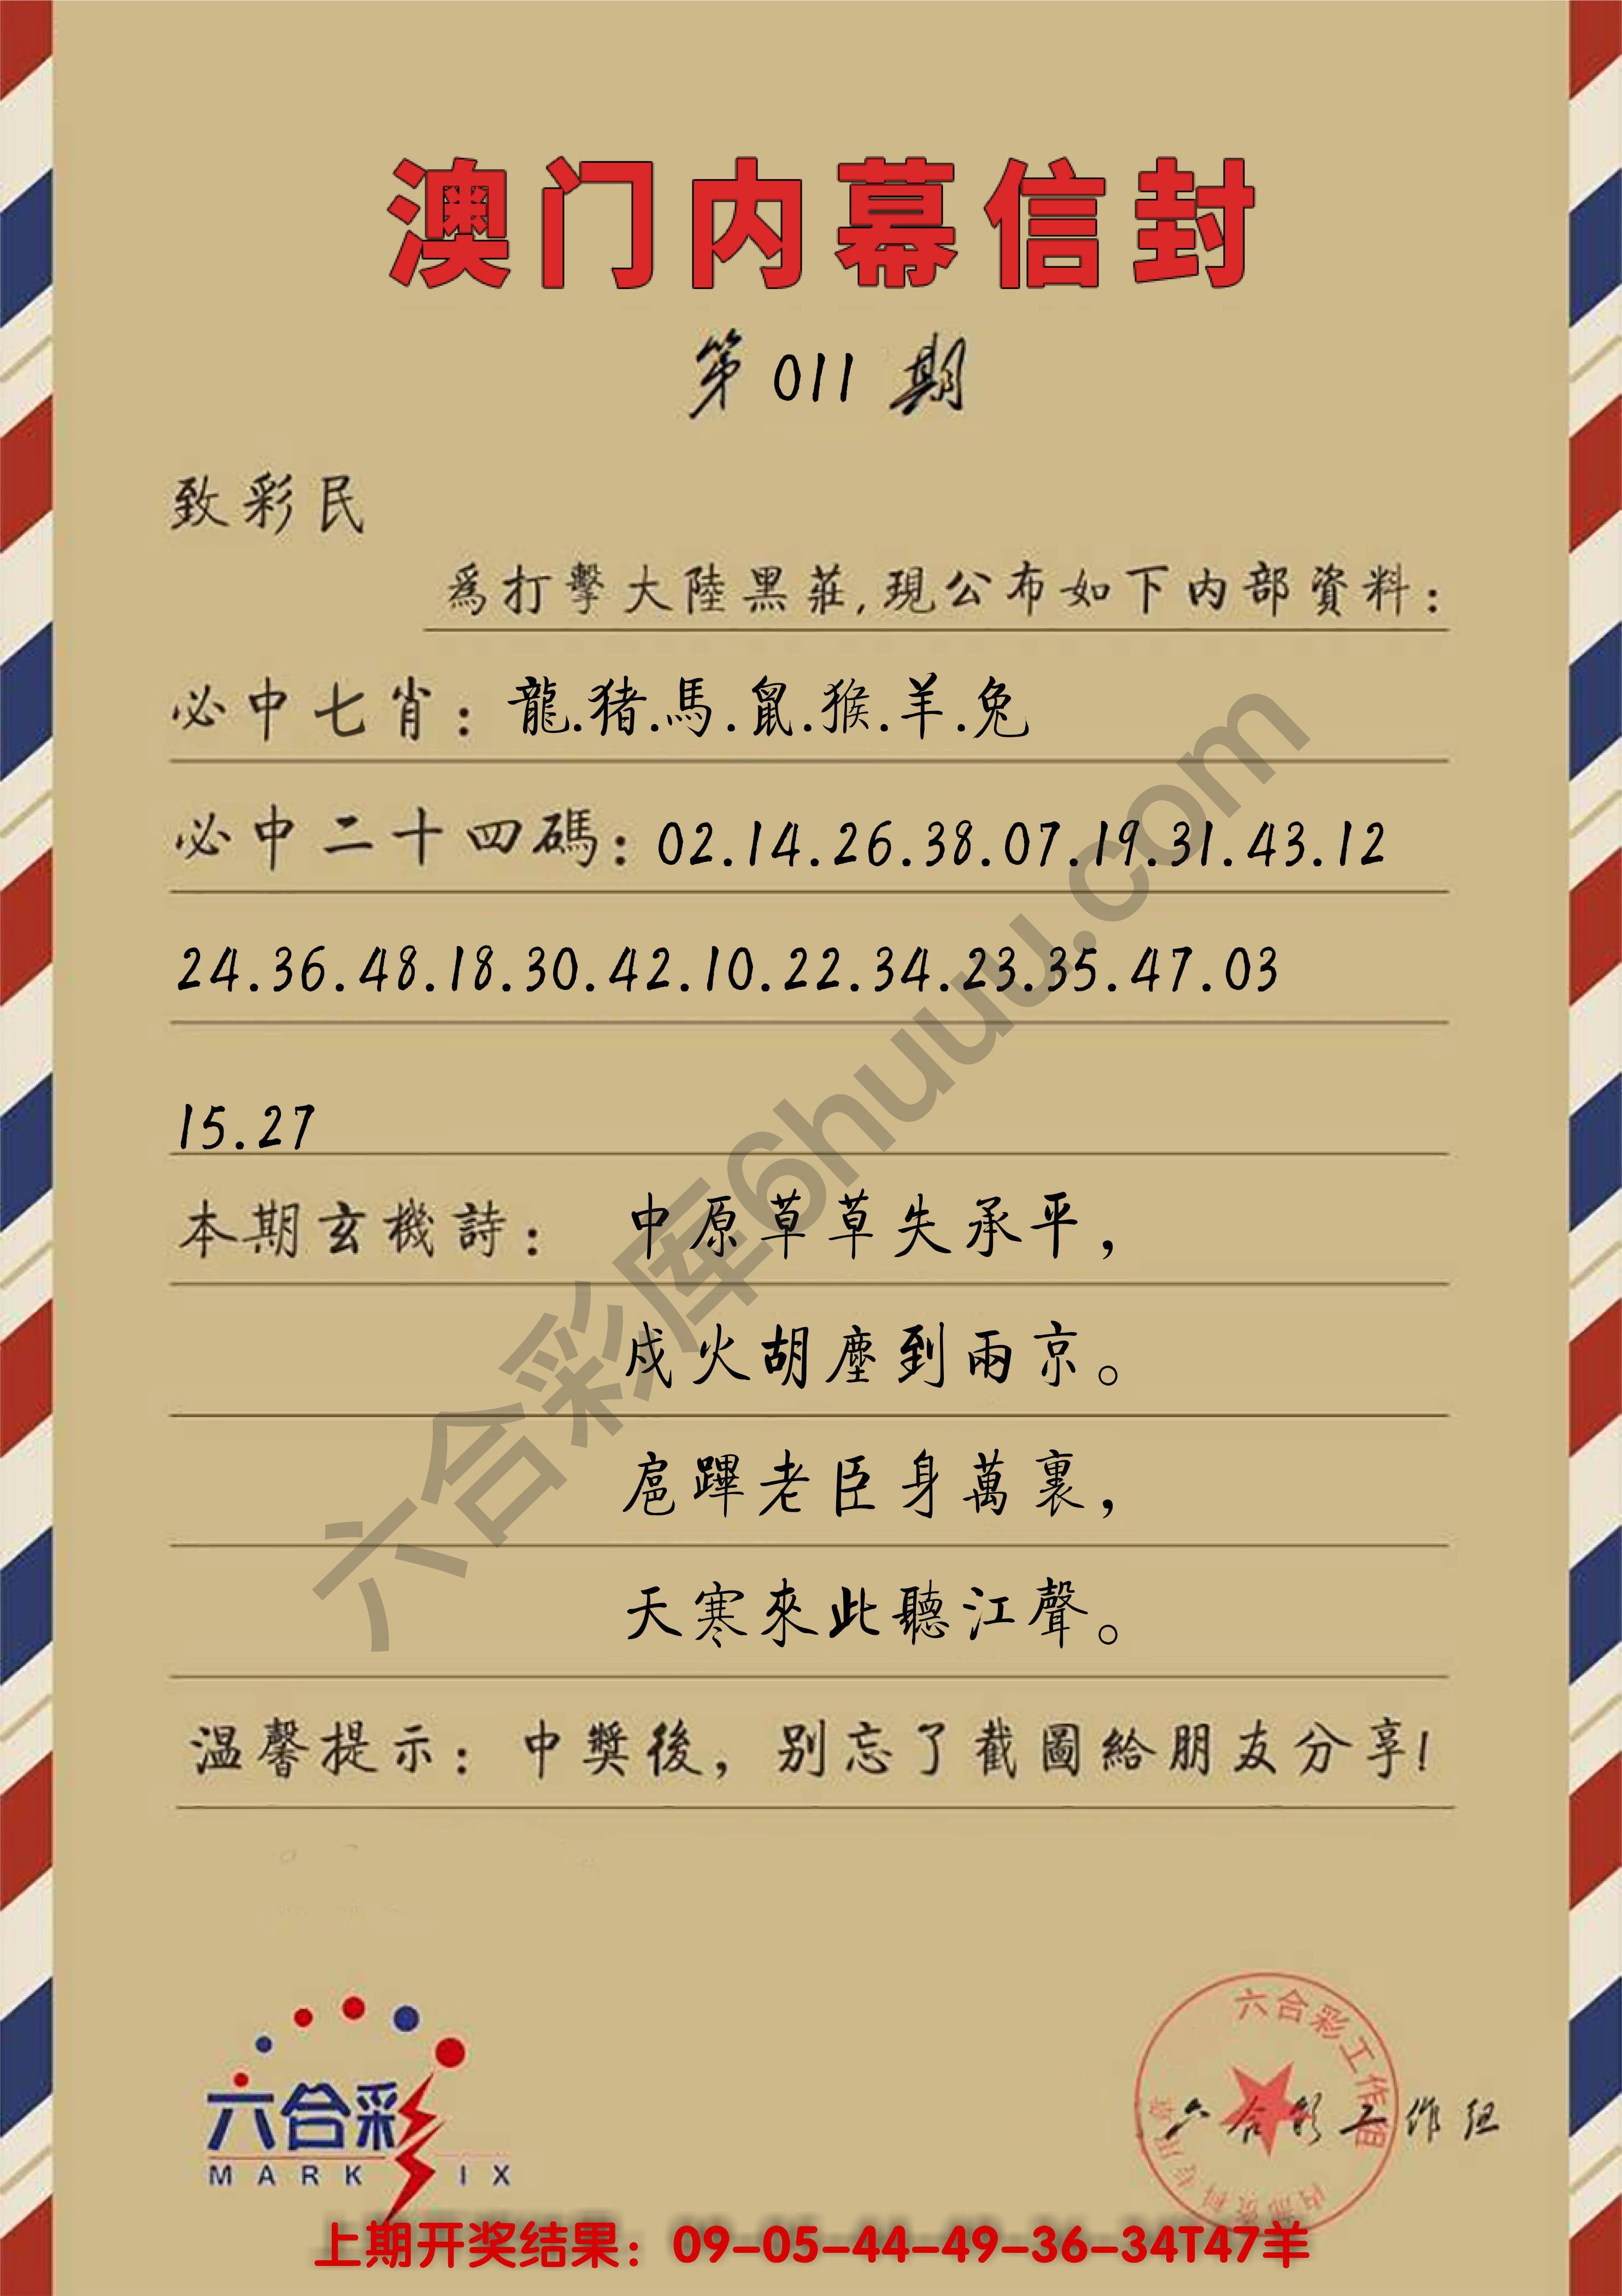 澳门内幕信封
第 011 期
致彩民
爲打擊大陸黑莊,現公布如下内部資料:
必中七肖: 龍.猪.馬.鼠.猴.羊.兔
必中二十四碼: 02.14.26.38.07.19.31.43.12
24.36.48.18.30.42.10.22.34.23.35.47.03
15.27
本期玄機詩: 中原草草失承平,
戍火胡塵到兩京。
扈蹕老臣身萬裏,
天寒來此聽江聲。
温馨提示: 中獎後, 别忘了截圖給朋友分享!
六合彩库6huuu.com
六合彩
MARK SIX
六合彩工作组
六合彩工作组
上期开奖结果: 09-05-44-49-36-34T47羊